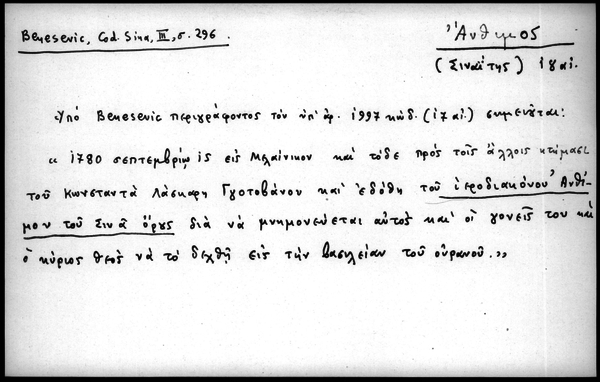 Benesevic, Cod. Sina, III, σ. 296.
Ἄνθιμος
(Σιναΐτης) ιη αἰ.
Ὑπό Benesevic περιγράφοντος τὸν ὑπ' ἀρ. 1997 κώδ. (17 αἰ.) σημειοῦται:
« 1780 σεπτεμβρίῳ 15 εἰς Μελαίνικον καὶ τόδε πρός τοῖς ἄλλοις κτήμασι
τοῦ Κωνσταντᾶ Λάσκαρη Γροτοβάνου καὶ ἐδόθη τοῦ ἱεροδιακόνου Ἀνθί-
μου τοῦ Σινᾶ ὄρους διὰ νὰ μνημονεύεται αὐτὸς καὶ οἱ γονεῖς του καὶ
ὁ κύριος θεὸς νὰ τὸ δεχθῇ εἰς τὴν βασιλείαν τοῦ οὐρανοῦ.»